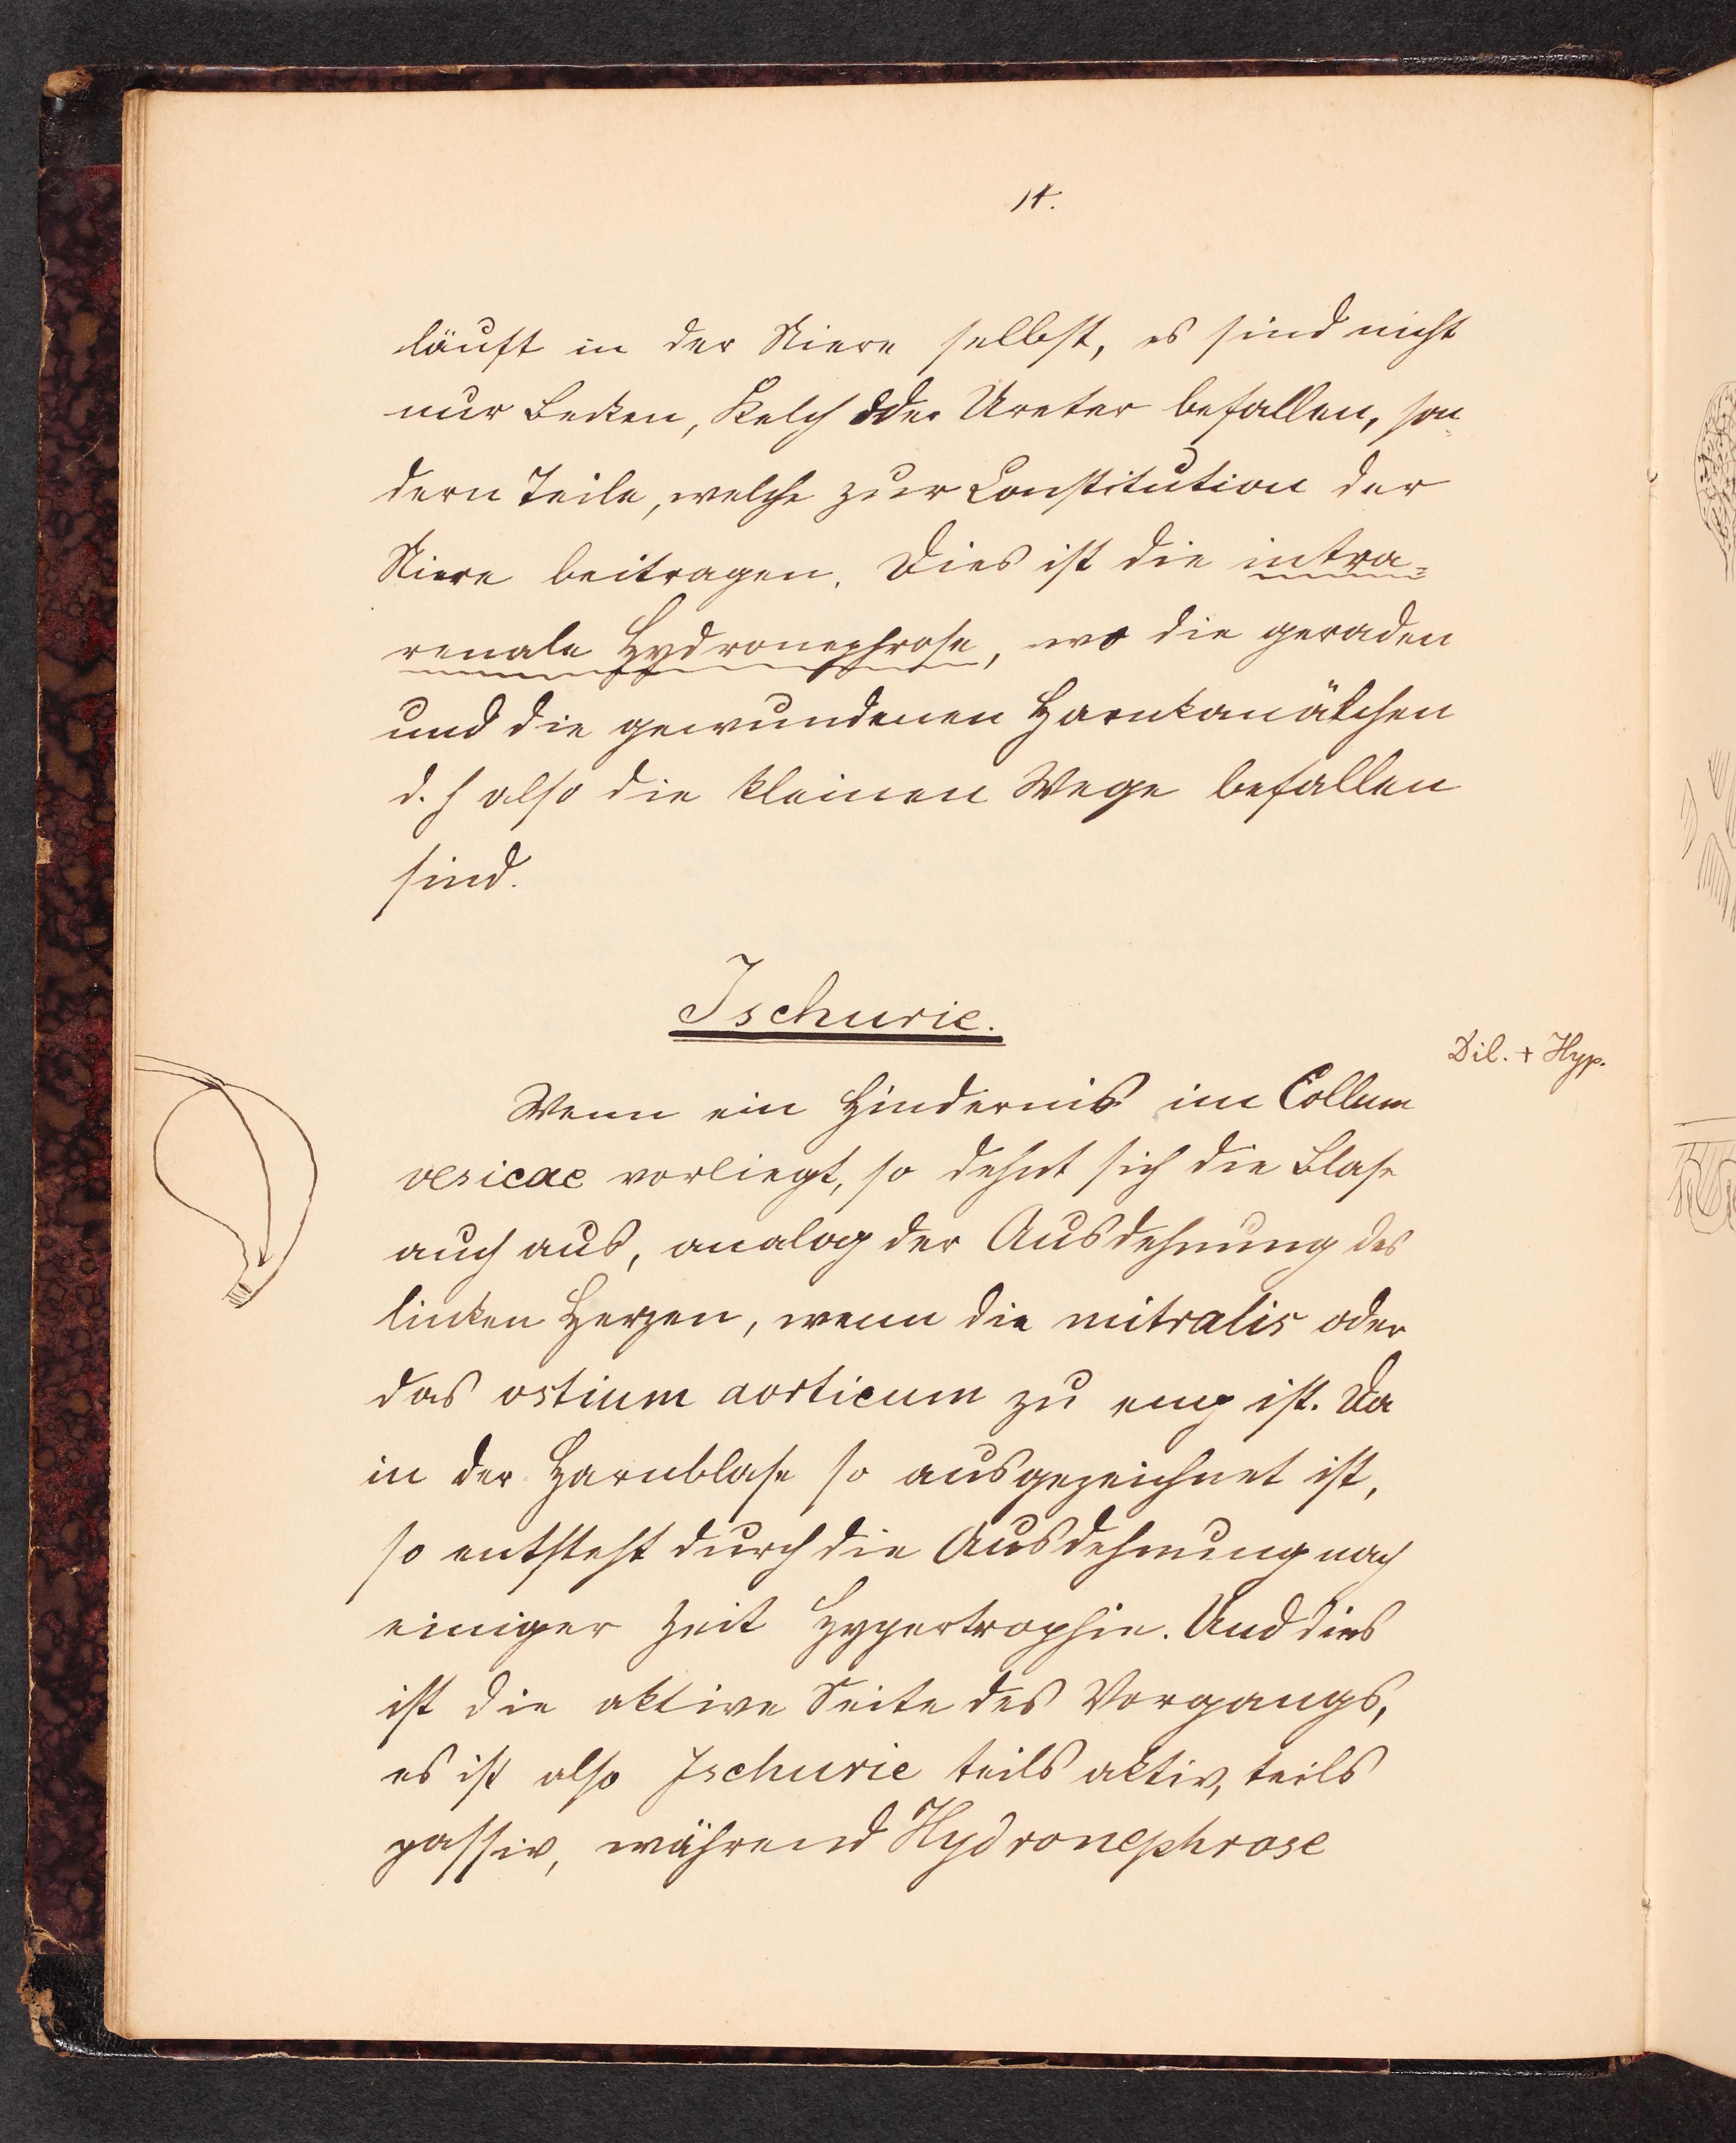 14.
läuft in der Niere selbst, es sind nicht
nur Becken, Kelch oder Ureter befallen, son-
dern Teile, welche zur Constitution der
Niere beitragen. Dies ist die intra-
renale Hydronephrose, wo die geraden
und die gewundenen Harnkanälchen
d. h also die kleinen Wege befallen
sind.
Ischurie.
Dil. + Hyp.
Wenn ein Hindernis im Collum
vesicae vorliegt, so dehnt sich die Blase
auch aus, analog der Ausdehnung des
linken Herzen, wenn die mitralis oder
das ostium aorticum zu eng ist. Da
in der Harnblase so ausgezeichnet ist,
so entsteht durch die Ausdehnung nach
einiger Zeit Hypertrophie. Und dies
ist die aktive Seite des Vorgangs,
es ist also Ischurie teils aktiv, teils
passiv, während Hydronephrose